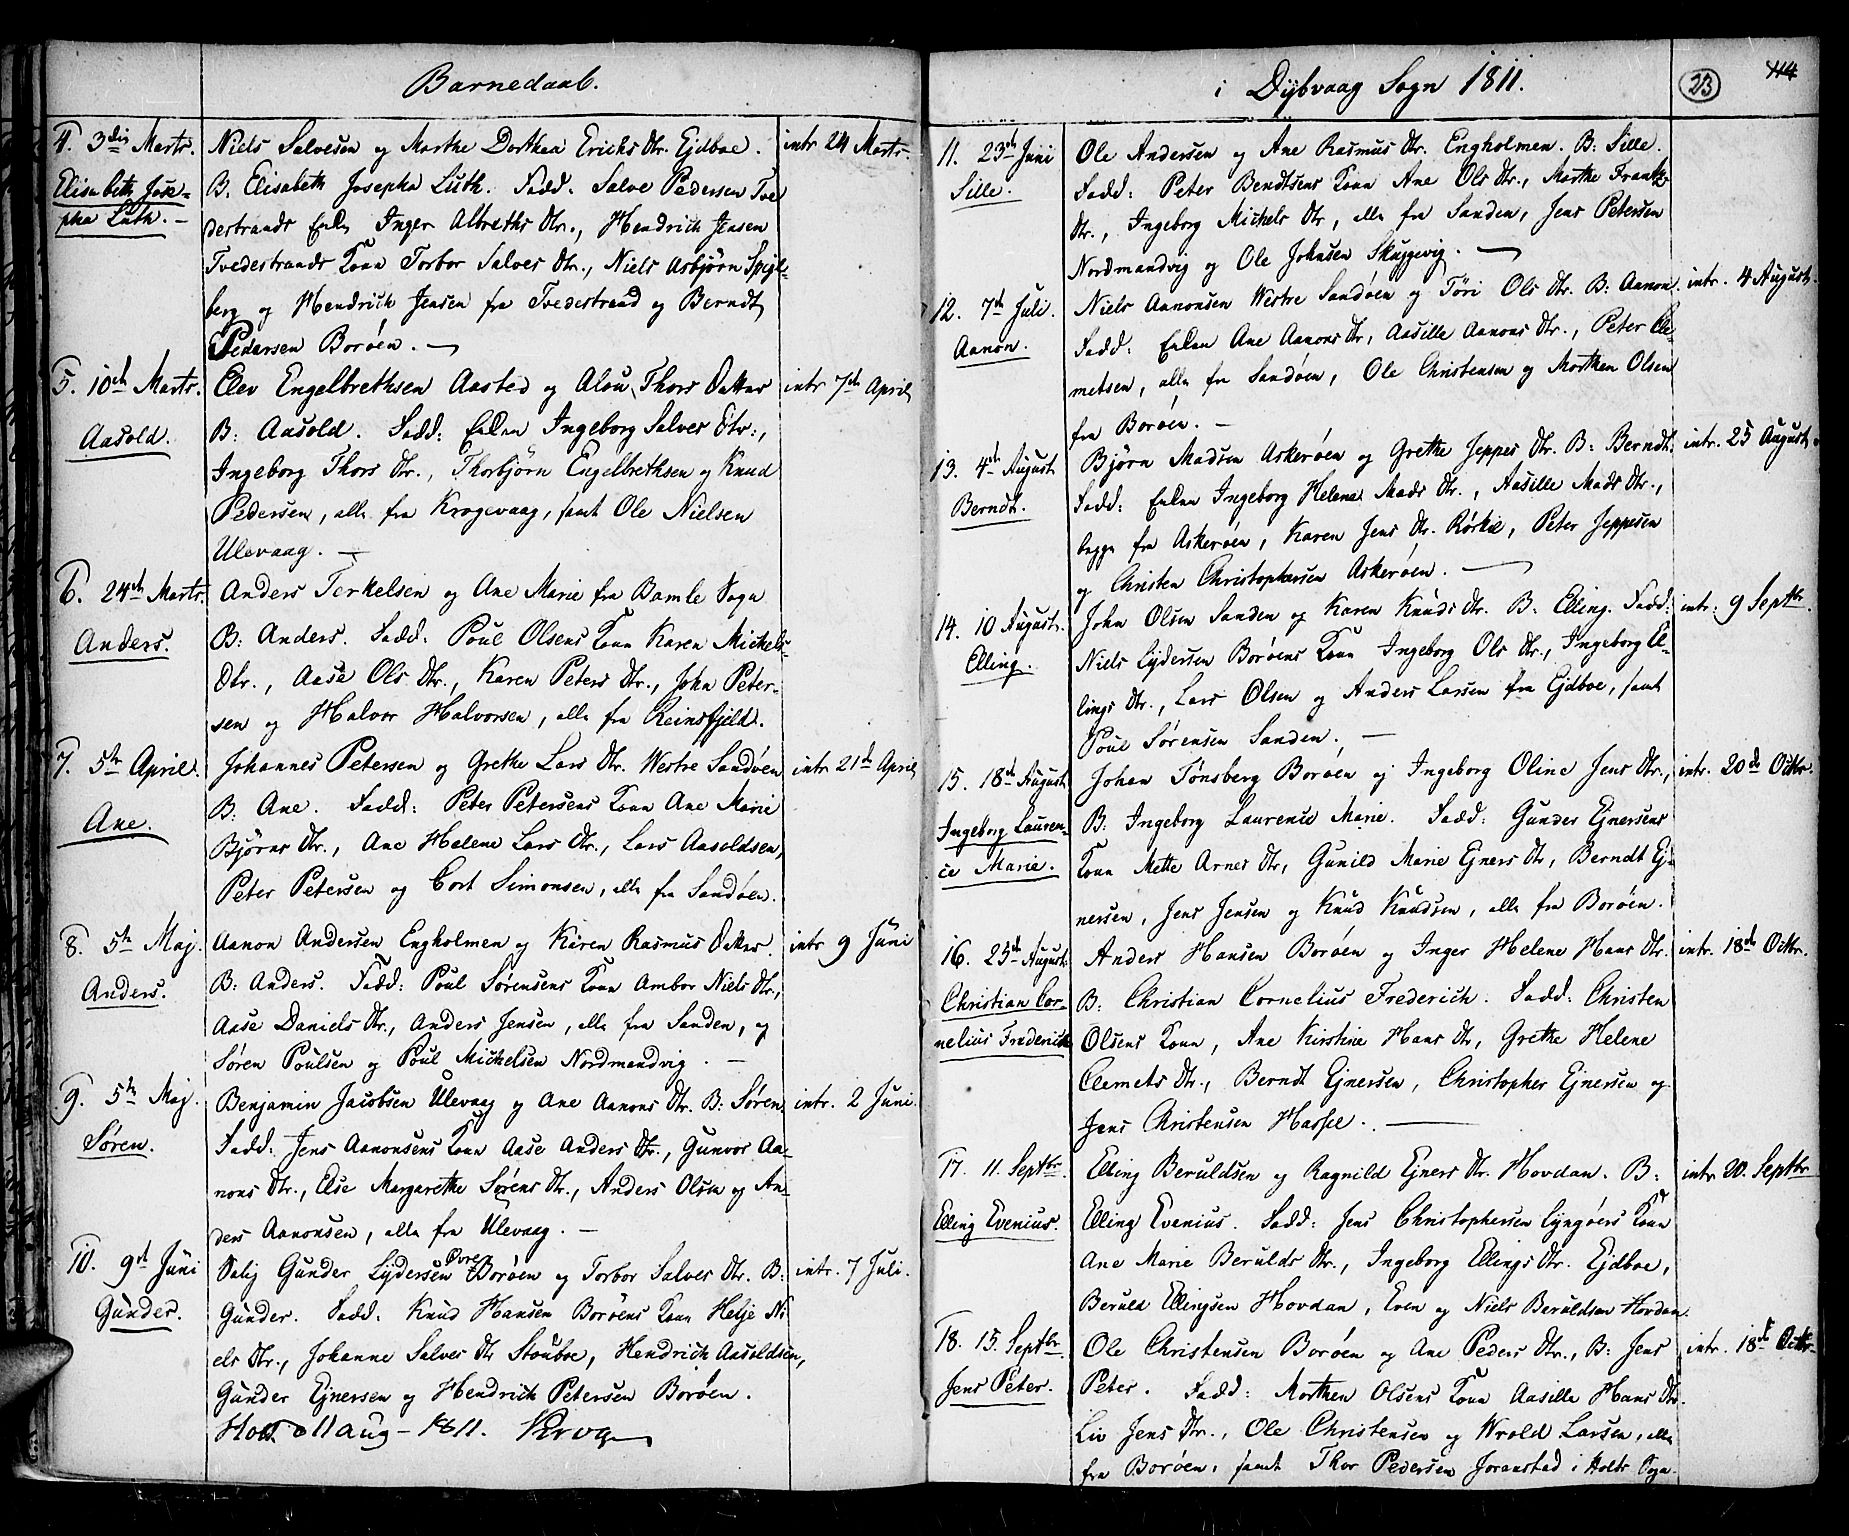 Barnedaab.
4. 3die Marts. Niels Salvesen og Marthe Dorthea Erichs Dtr. Ejdboe. intr 24 Marts.
Elisabeth Jose- B. Elisabeth Josepha Luth. Fadd. Salve Pedersen Tve
pha Luth. — destrands Enke Inger Albreths Dtr., Hendrich Jensen
Tvedestrands Kone Torbor Salves Dtr., Niels Asbjörn Spigl-
berg og Hendrich Jensen fra Tvedestrand og Berndt
Pedersen Borøen. —
5. 10de Marts. Elev Engelbrethsen Aasted og Alou Thors Datter intr 7de April
Aasold. B: Aasold. Fadd: Enken Ingeborg Salves Dtr.,
Ingeborg Thors Dtr., Thorbjörn Engelbrethsen og Knud
Pedersen, alle fra Krogevaag, samt Ole Nielsen
Ulevaag. —
6. 24de Marts. Anders Terkelsen og Ane Marie fra Bamle Sogn
Anders. B: Anders. Fadd: Poul Olsens Kone Karen Michels-
Dtr., Aase Ols Dtr., Karen Peters Dtr., John Peter-
sen og Halvor Halvorsen, alle fra Reinsfjeld.
7. 5te April. Johannes Petersen og Grethe Lars Dtr. Westre Sandøen intr 21de April
Ane. B: Ane. Fadd: Peter Petersens Kone Ane Marie
Björns Dtr., Ane Helene Lars Dtr., Lars Aasoldsen,
Peter Petersen og Cort Simonsen, alle fra Sandøen.
8. 5te Maj. Aanon Andersen Engholmen og Karen Rasmus Datter. intr 9 Juni
Anders. B: Anders. Fadd: Poul Sørensens Kone Ambor Niels Dtr.,
Aase Daniels Dtr., Anders Jensen, alle fra Sanden, og
Søren Poulsen og Poul Michelsen Nordmandvig. —
9. 5te Maj. Benjamin Jacobsen Ulevaag og Ane Aanons Dtr. B: Søren intr. 2 Juni.
Søren. Fadd: Jens Aanonsens Kone Aase Anders Dtr., Gunvor Aa-
nons Dtr., Else Margarethe Sørens Dtr., Anders Olsen og An-
ders Aanonsen, alle fra Ulevaag. —
10. 9de Juni Salig Gunder Lydersen Borøen og Torbor Salves Dtr. B: intr. 7 Juli.
Gunder. Gunder. Fadd: Knud Hansen Borøens Kone Helje Ni
els Dtr., Johanne Salves Dtr Stouboe, Hendrich Aasoldsen,
Gunder Ejnersen og Hendrich Petersen Borøen.
Holt d 11 Aug – 1811. Krog
i Dybvaag Sogn 1811. 23 114
11. 23de Juni Ole Andersen og Ane Rasmus Dtr. Engholmen. B: Sille.
Sille. Fadd: Peter Bendtsens Kone Ane Ols Dtr., Marthe Franks
Dtr., Ingeborg Michels Dtr, alle fra Sanden, Jens Petersen
Nordmandvig og Ole Johnsen Skuggevig. —
12. 7de Juli. Niels Aanonsen Westre Sandøen og Töri Ols Dtr. B: Aanon. intr. 4 August.
Aanon. Fadd: Enken Ane Aanons Dtr, Aasille Aanons Dtr., Peter Cle-
metsen, alle fra Sandøen, Ole Christensen og Morthen Olsen
fra Borøen. —
13. 4de August Björn Madsen Askerøen og Grethe Jeppes Dtr. B: Berndt. intr. 25 August.
Berndt. Fadd: Enken Ingeborg Helene Mads Dtr., Aasille Mads Dtr.,
begge fra Askerøen, Karen Jens Dtr. Rørkie, Peter Jeppesen
og Christen Christophersen Askerøen. —
14. 10 August. John Olsen Sanden og Karen Knuds Dtr. B: Elling. Fadd: intr: 9 Septbr.
Elling. Niels Lydersen Borøens Kone Ingeborg Ols Dtr., Ingeborg El-
lings Dtr., Lars Olsen og Anders Larsen fra Ejdboe, samt
Poul Sørensen Sanden. —
15. 18de August Johan Tönsberg Borøen og Ingeborg Oline Jens Dtr., intr. 20de Octbr.
Ingeborg Lauren- B: Ingeborg Laurence Marie. Fadd: Gunder Ejnersens
ce Marie. Kone Mette Arnes Dtr, Gunild Marie Ejners Dtr, Berndt Ej-
nersen, Jens Jensen og Knud Knudsen, alle fra Borøen.
16. 25de August Anders Hansen Borøen og Inger Helene Hans Dtr. intr. 18de Octbr.
Christian Cor- B: Christian Cornelius Frederich. Fadd: Christen
nelius Frederich Olsens Kone, Ane Kirstine Hans Dtr, Grethe Helene
Clemets Dtr., Berndt Ejnersen, Christopher Ejnersen og
Jens Christensen Hassel. —
17. 11. Septbr. Elling Beruldsen og Ragnild Ejners Dtr. Hovdan. B: intr. 20. Septbr
Elling Evenius. Elling Evenius. Fadd: Jens Christophersen Lyngøers Kone
Ane Marie Berulds Dtr., Ingeborg Ellings Dtr. Ejdboe,
Beruld Ellingsen Hovdan, Even og Niels Beruldsen Hovdan.
18. 15. Septbr Ole Christensen Borøen og Ane Peders Dtr., B: Jens intr. 18de Octbr.
Jens Peter. Peter. Fadd: Morthen Olsens Kone Aasille Hans Dtr.
Liv Jens Dtr., Ole Christensen og Wrold Larsen, alle
fra Borøen, samt Thor Pedersen Joranstad i Holts Sogn.